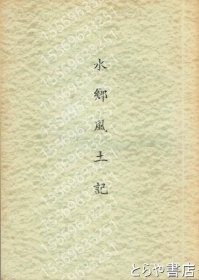 水郷風土記
とらや書店